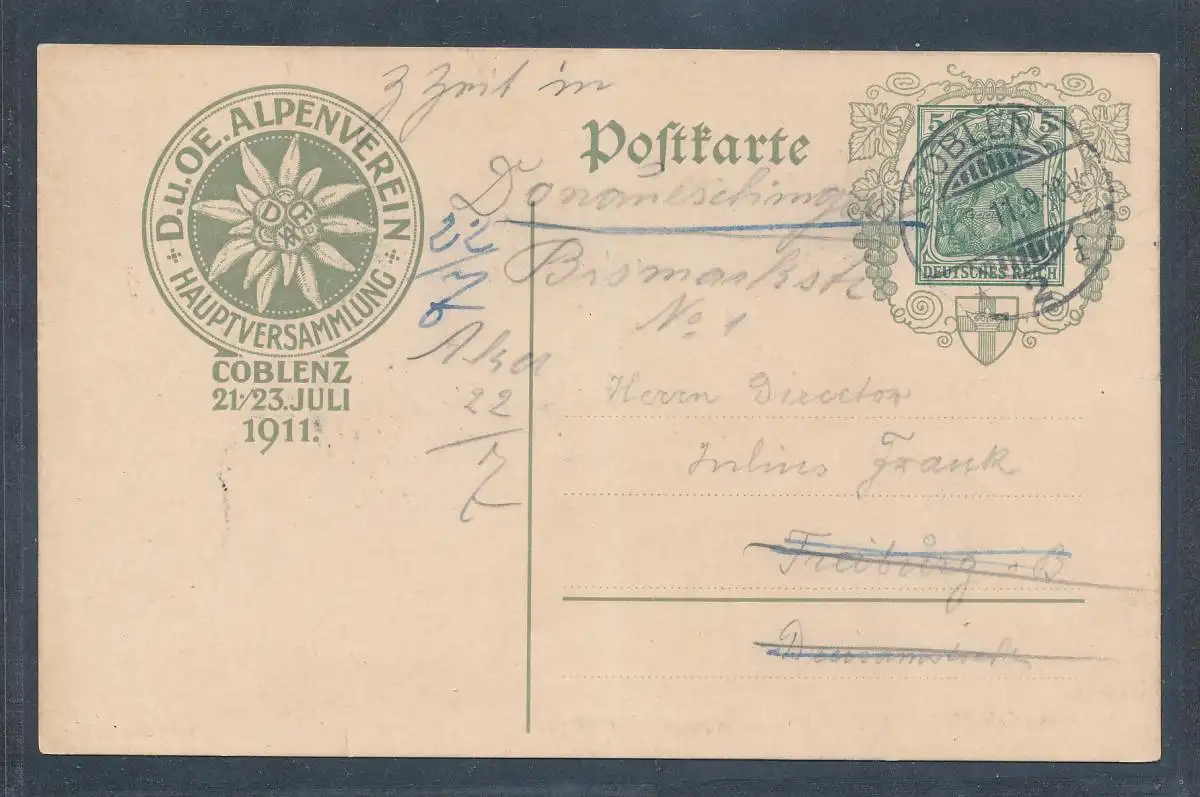 D.u.OE. ALPENVEREIN
HAUPTVERSAMMLUNG
COBLENZ
21./23. JULI
1911.
z Zeit in
Postkarte
Donaueschingen
22/7
Bismarckstr
No 1
22/7
Herrn Director
Julius Frank
Freiburg i B
Dreisamstraße
5 5
DEUTSCHES REICH
COBLENZ
11.9
2